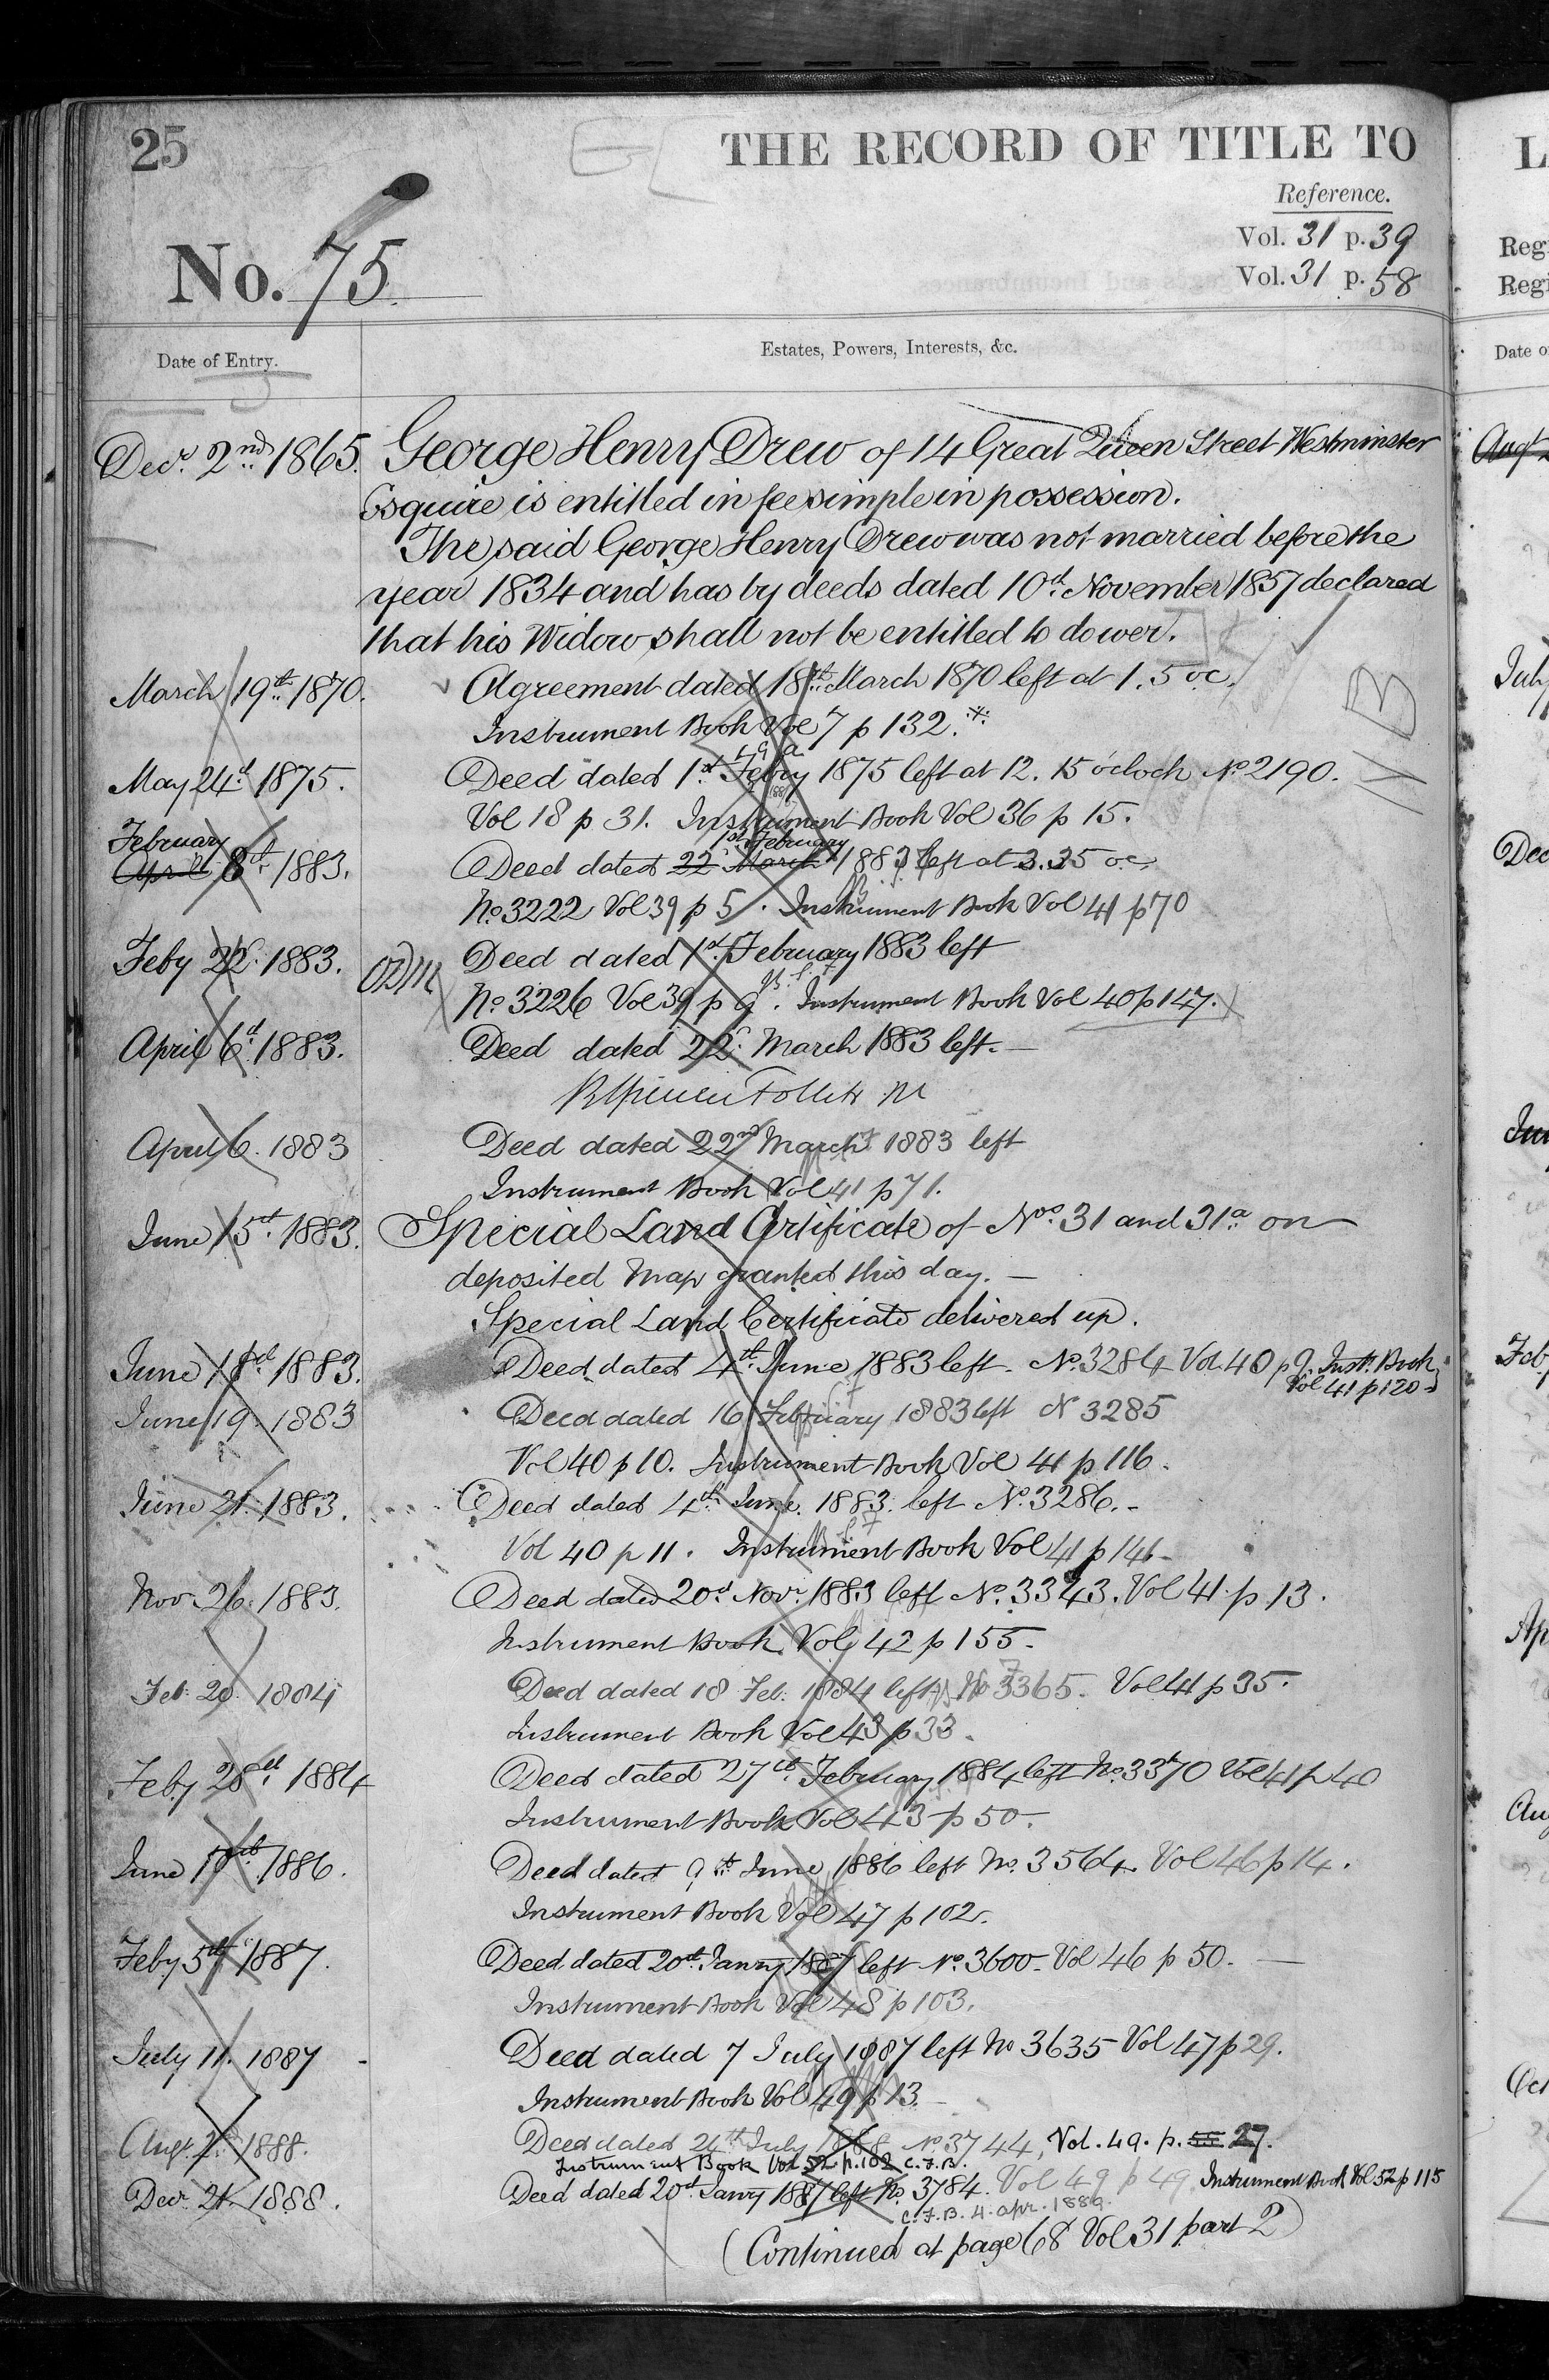 25
THE RECORD OF TITLE TO
Reference.
No. 75.
Vol. 31 p. 39
Vol. 31 p. 58
Date of Entry.
Estates, Powers, Interests, &c.
Decr. 2nd 1865. George Henry Drew of 14 Great Queen Street Westminster
Esquire is entitled in fee simple in possession.
The said George Henry Drew was not married before the
year 1834 and has by deeds dated 10th November 1857 declared
that his Widow shall not be entitled to dower.
March 19th 1870. Agreement dated 18th March 1870 left at 1.5 oc.
Instrument Book Vol 7 p 132.
May 24th 1875. Deed dated 1st Febry 1875 left at 12.15 o'clock No 2190.
Vol 18 p 31. Instrument Book Vol 36 p 15.
February
April 8th 1883. 1st February
Deed dated 22d March 1883 left at 3.35 oc
No. 3222 Vol 39 p 5. Instrument Book Vol 41 p 70
Feby 22d 1883. Deed dated 1st February 1883 left
No. 3226 Vol 39 p 9. Instrument Book Vol 40 p 147.
April 6th 1883. Deed dated 22d March 1883 left.
April 6. 1883 Deed dated 22nd March 1883 left
Instrument Book Vol 41 p 71.
June 15th 1883. Special Land Certificate of Nos. 31 and 31a on
deposited Map granted this day.
Special Land Certificate delivered up.
June 18th 1883. Deed dated 4th June 1883 left. No. 3284 Vol. 40 p 9. Inst. Book
Vol 41 p 120
June 19. 1883 Deed dated 16 February 1883 left N 3285
Vol 40 p 10. Instrument Book Vol 41 p 116.
June 21. 1883. Deed dated 4th June. 1883. left No. 3286.
Vol 40 p 11. Instrument Book Vol 41 p 146
Nov. 26. 1883. Deed dated 20th Novr. 1883 left No. 3343. Vol 41. p 13.
Instrument Book Vol 42 p 155.
Feb. 20. 1884 Deed dated 18 Feb. 1884 left No 3365. Vol 41 p 35.
Instrument Book Vol 43 p 33.
Feby 28th 1884 Deed dated 27th February 1884 left No. 3370 Vol 41 p 40
Instrument Book Vol 43 p 50.
June 1886. Deed dated 9th June 1886 left No. 3564. Vol 46 p 14.
Instrument Book Vol 47 p 102.
Feby 5th 1887. Deed dated 20th Janry 1887 left No. 3600. Vol 46 p 50.
Instrument Book Vol 48 p 103.
July 11. 1887 Deed dated 7 July 1887 left No 3635 Vol 47 p 29.
Instrument Book Vol 49 p 13.
Augt. 2. 1888. Deed dated 24th July 1888 No. 3744, Vol. 49. p. 27.
Instrument Book Vol 52 p. 102 C.F.B.
Decr. 21. 1888. Deed dated 20th Janry 1887 left No. 3784. Vol 49 p 49 Instrument Book Vol 52 p 115
C.F.B. 4. apr. 1889.
(Continued at page 68 Vol 31 part 2)